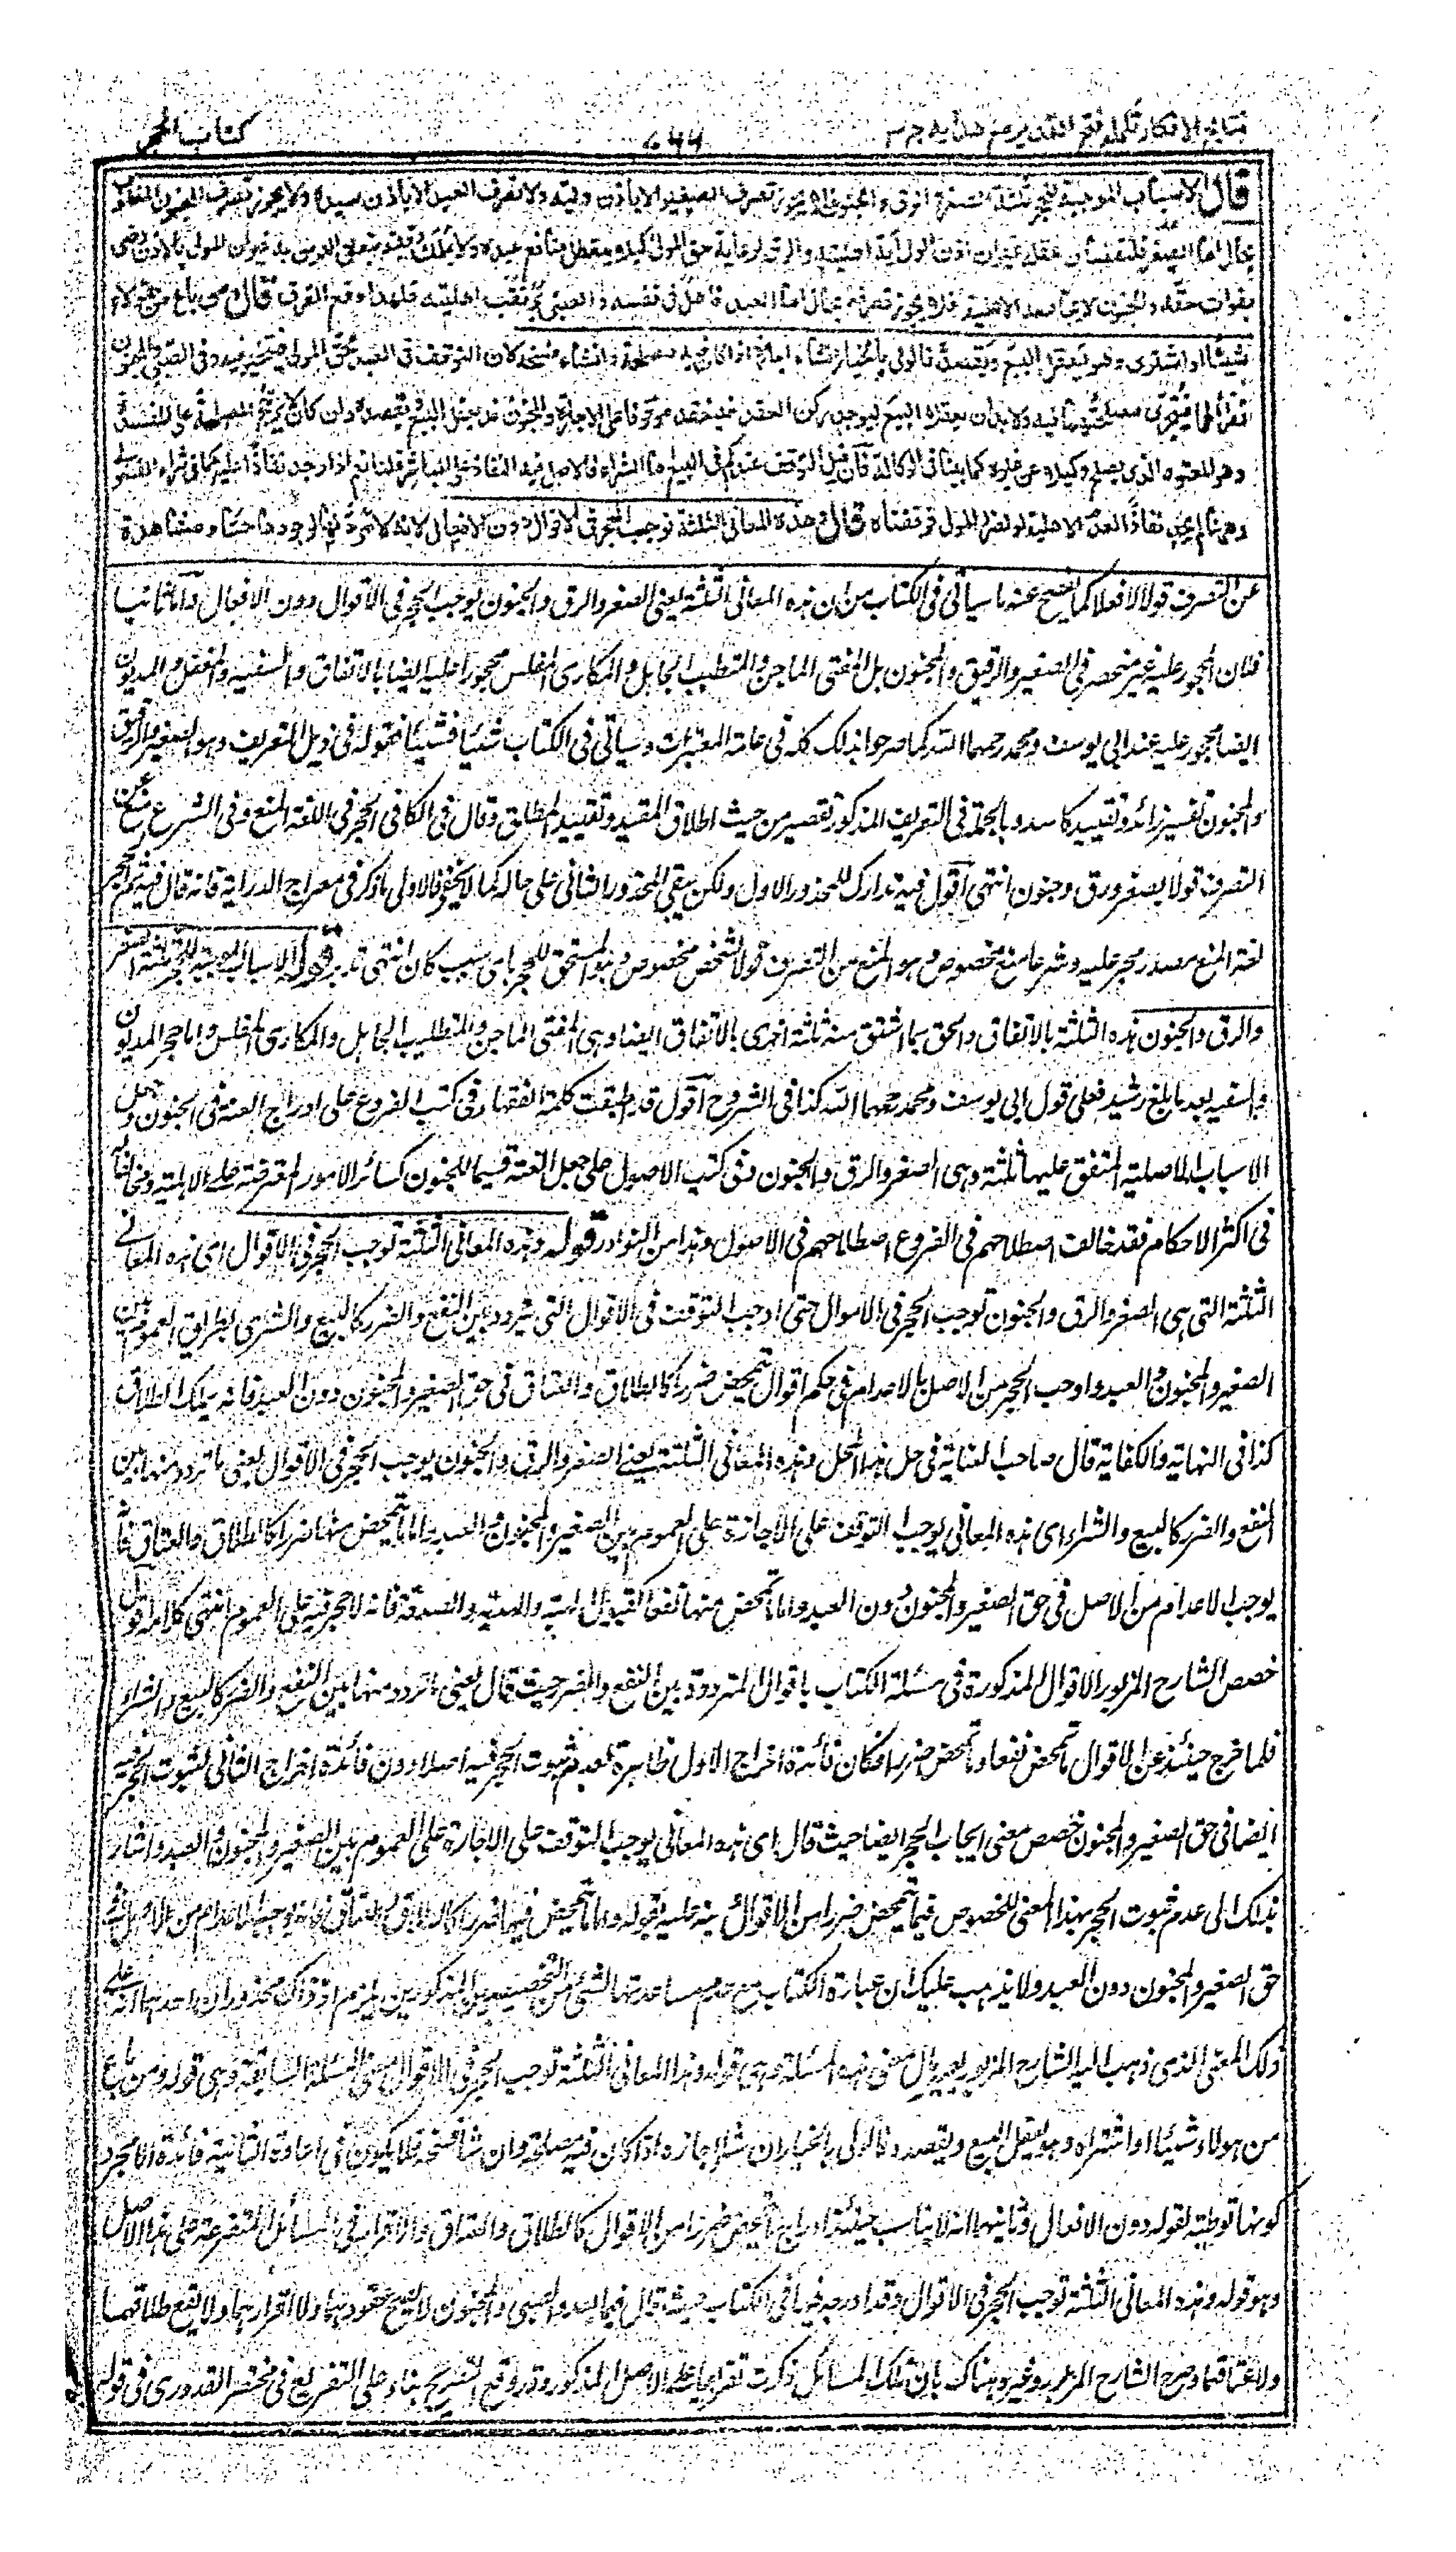 نتائج الافكار تكملة فتح القدير مع هدايه ج ٣
كتاب الحجر
قال الاسباب الموجبة للحجر ثلثة الصغر والرق والجنون فلا يجوز تصرف الصغير الا باذن وليه ولا تصرف العبد الا باذن سيده ولا يجوز تصرف المجنون المغلوب
بحال اما الصغر فلنقصان عقله غير ان اذن الولي آية اهليته والرق لرعاية حق المولى كيلا يتعطل منافع عبده ولا يملك رقبته بتعلق الدين به غير ان المولى بالاذن رضي
بفوات حقه والجنون لا يجامعه الاهلية فلا يجوز تصرفه بحال اما العبد فاهل في نفسه والصبي ترتقب اهليته فلهذا وقع الفرق قال ومن باع من هؤلاء
شيئا او اشترى وهو يعقل البيع ويقصده فالولي بالخيار ان شاء اجازه اذا كان فيه مصلحة وان شاء فسخه لان التوقف في العبد لحق المولى فيتخير فيه وفي الصبي والمجنون
نظرا لهما فيتحرى مصلحتهما فيه ولا بد ان يعقلا البيع ليوجد ركن العقد فينعقد موقوفا على الاجازة والمجنون قد يعقل البيع ويقصده وان كان لا يرجح المصلحة على المفسدة
وهو المعتوه الذي يصلح وكيلا عن غيره كما بينا في الوكالة فان قيل التوقف عندكم في البيع اما الشراء فالاصل فيه النفاذ على المباشر قلنا نعم اذا وجد نفاذا عليه كما في شراء الفضولي
وههنا لم يجد نفاذا لعدم الاهلية او لضرر المولى فوقفناه قال وهذه المعاني الثلثة توجب الحجر في الاقوال دون الافعال لانه لا مرد لها لوجودها حسا ومشاهدة
عن التصرف قولا لا فعلا كما يفصح عنه ما سيأتي في الكتاب من ان هذه المعاني الثلثة يعني الصغر والرق والجنون توجب الحجر في الاقوال دون الافعال واما ثانيا
فلان المحجور عليه غير منحصر في الصغير والرقيق والمجنون بل المفتي الماجن والمتطبب الجاهل والمكاري المفلس محجور عليه ايضا بالاتفاق والسفيه والمغفل والمديون
ايضا محجور عليه عند ابي يوسف ومحمد رحمهما الله كما صرحوا بذلك كله في عامة المعتبرات وسيأتي في الكتاب شيئا فشيئا فقوله في ذيل التعريف وهو الصغير والرقيق
والمجنون تفسير زائد وتقييد كاسد وبالجملة في التعريف المذكور تقصير من حيث اطلاق المقيد وتقييد المطلق وقال في الكافي الحجر في اللغة المنع وفي الشرع منع عن
التصرف قولا بصغر ورق وجنون انتهى اقول فيه تدارك للمحذور الاول ولكن يبقى المحذور الثاني على حاله كما لا يخفى فالاولى ما ذكر في معراج الدراية فانه قال فيه ثم الحجر
لغة المنع مصدر حجر عليه وشرعا منع مخصوص وهو المنع من التصرف قولا لشخص مخصوص وهو المستحق للحجر باي سبب كان انتهى تدبر قوله الاسباب الموجبة للحجر ثلثة الصغر
والرق والجنون هذه الثلثة بالاتفاق والحق بما اشتق منه ثلثة اخرى بالاتفاق ايضا وهي المفتي الماجن والمتطبب الجاهل والمكاري المفلس واما حجر المديون
والسفيه بعد ما بلغ رشيد فعلى قول ابي يوسف ومحمد رحمهما الله كذا في الشروح اقول قد اطبقت كلمة الفقهاء في كتب الفروع على ادراج العته في الجنون وجعل
الاسباب الاصلية المتفق عليها ثلثة وهي الصغر والرق والجنون وفي كتب الاصول على جعل العته قسيما للجنون كسائر الامور المعترضة على الاهلية ومخالفا له
في اكثر الاحكام فقد خالف اصطلاحهم في الفروع اصطلاحهم في الاصول وهذا من النوادر قوله وهذه المعاني الثلثة توجب الحجر في الاقوال اي هذه المعاني
الثلثة التي هي الصغر والرق والجنون توجب الحجر في الاموال حتى اوجب التوقف في الاقوال التي تتردد بين النفع والضرر كالبيع والشرى بطريق العموم بين
الصغير والمجنون والعبد واوجب الحجر من الاصل بالاعدام في حكم اقوال تتمحض ضررا كالطلاق والعتاق في حق الصغير والمجنون دون العبد فانه يملك الطلاق
كذا في النهاية والكفاية قال صاحب العناية في حل هذا المحل وهذه المعاني الثلثة يعني الصغر والرق والجنون يوجب الحجر في الاقوال يعني ما تردد منها بين
النفع والضرر كالبيع والشراء اي هذه المعاني يوجب التوقف على الاجازة على العموم بين الصغير والمجنون والعبد واما ما يتمحض منها ضررا كالطلاق والعتاق فانه
يوجب الاعدام من الاصل في حق الصغير والمجنون دون العبد واما ما تمحض منها نفعا كقبول الهبة والهدية والصدقة فانه لا حجر فيه على العموم انتهى كلامه اقول
خصص الشارح المزبور الاقوال المذكورة في مسئلة الكتاب باقوال المترددة بين النفع والضرر حيث قال يعني ما تردد منها بين النفع والضرر كالبيع والشراء
فلما خرج حينئذ عن الاقوال ما تمحض نفعا وما تمحض ضررا وكان فائدة اخراج الاول ظاهرة لعدم ثبوت الحجر فيه اصلا دون فائدة اخراج الثاني لثبوت الحجر فيه
ايضا في حق الصغير والمجنون خصص معنى ايجاب الحجر ايضا حيث قال اي هذه المعاني يوجب التوقف على الاجازة على العموم بين الصغير والمجنون والعبد واشار
بذلك الى عدم ثبوت الحجر بهذا المعنى المخصوص فيما يتمحض ضررا من الاقوال ونبه عليه بقوله واما ما يتمحض فيها ضررا كالطلاق والعتاق فانه يوجب الاعدام من الاصل في
حق الصغير والمجنون دون العبد ولا يذهب عليك ان عبارة الكتاب مع عدم مساعدتها لشيء من التخصيصين المذكورين يلزم اذ ذاك محذوران احدهما انه على
ذلك المعنى الذي ذهب اليه الشارح المزبور يصير مآل معنى هذه المسئلة وهي قوله وهذه المعاني الثلثة توجب الحجر في الاقوال معنى المسئلة السابقة وهي قوله ومن باع
من هؤلاء شيئا او اشتراه وهو يعقل البيع ويقصده فالولي بالخيار ان شاء اجازه اذا كان فيه مصلحة وان شاء فسخه فلا يكون في اعادة الثانية فائدة الا مجرد
كونها توطية لقوله دون الافعال وثانيهما انه لا يناسب حينئذ ادراج ما تمحض ضررا من الاقوال كالطلاق والعتاق والاقرار في المسائل المتفرعة على هذا الاصل
وهو قوله وهذه المعاني الثلثة توجب الحجر في الاقوال وقد ادرجه فيها في الكتاب حيث قال فيما بعد والصبي والمجنون لا يصح عقودهما ولا اقرارهما ولا يقع طلاقهما
ولا عتاقهما وصرح الشارح المزبور وغيره هناك بان تلك المسائل ذكرت تفريعا على الاصل المذكور وقد وقع التصريح بناء على التفريع في مختصر القدوري في قوله